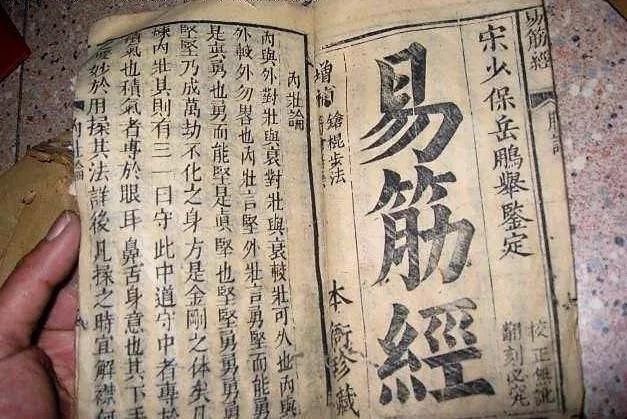 易筋經
宋少保岳鵬舉鑒定
校正無訛
翻刻必究
易筋經
增補
鎗棍步法
本衙珍藏
內壯論
內與外對壯與衰對壯與衰較壯可久也內與
外較外勿畧也內壯言堅外壯言勇堅而能勇
是眞勇也勇而能堅是眞堅也堅堅勇勇勇
堅堅乃成萬劫不化之身方是金剛之体矣凡
煉內壯其則有三一曰守此中道守中者專於
積氣也積氣者專於眼耳鼻舌身意也其下手
要妙於用揉其法詳後凡揉之時宜解襟仰
內壯論